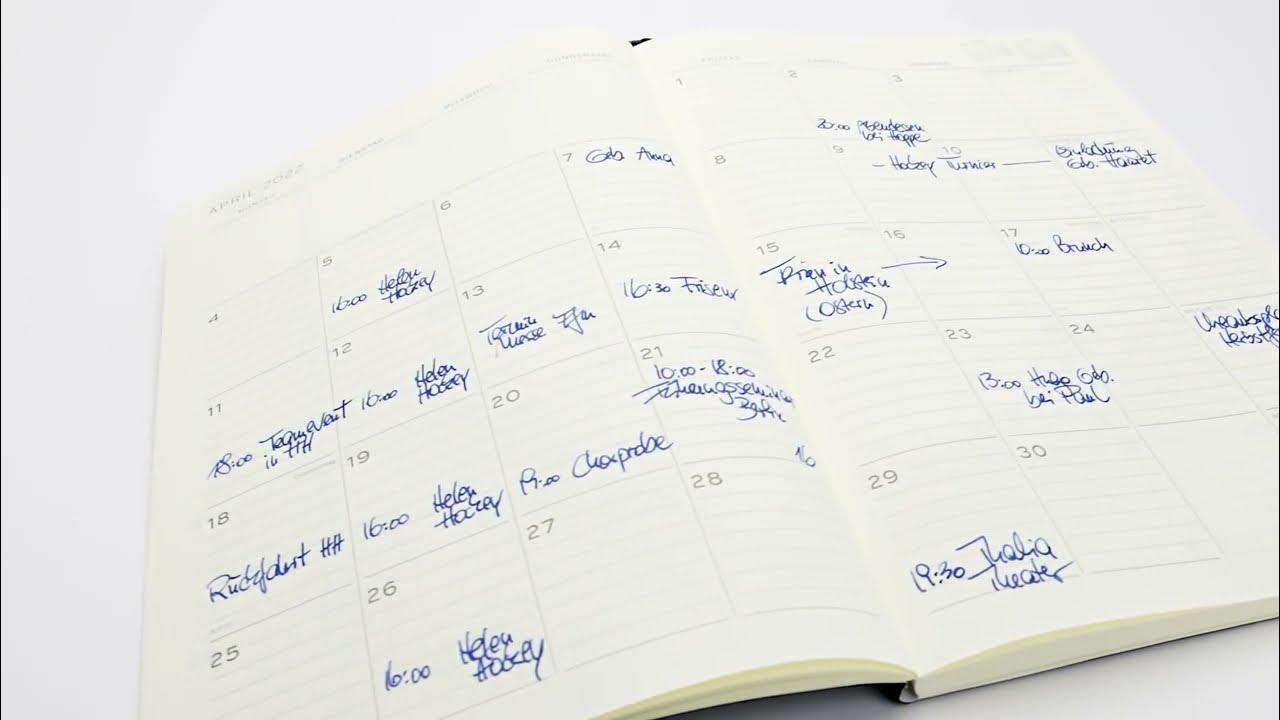 APRIL 2022
DIENSTAG
MITTWOCH
DONNERSTAG
FREITAG
1
2
3
20:00
bei Hoppe
4
5
16:00 Helen
Hockey
6
7 Geb. Anna
8
9
10
– Hockey Turnier —
Einladung
Geb. Harriet
11
18:00 Teamevent
in HH
12
16:00 Helen
Hockey
13
Termin
Messe
14
16:30 Friseur
15
in
Holstein
(Ostern)
16
17
10:00 Brunch
18
Rückfahrt HH
19
16:00 Helen
Hockey
20
19:00 Chorprobe
21
10:00-18:00
Berlin
22
23
13:00 Hugo Geb.
bei Paul
24
25
26
16:00 Helen
Hockey
27
28
16
29
19:30 Thalia
Theater
30